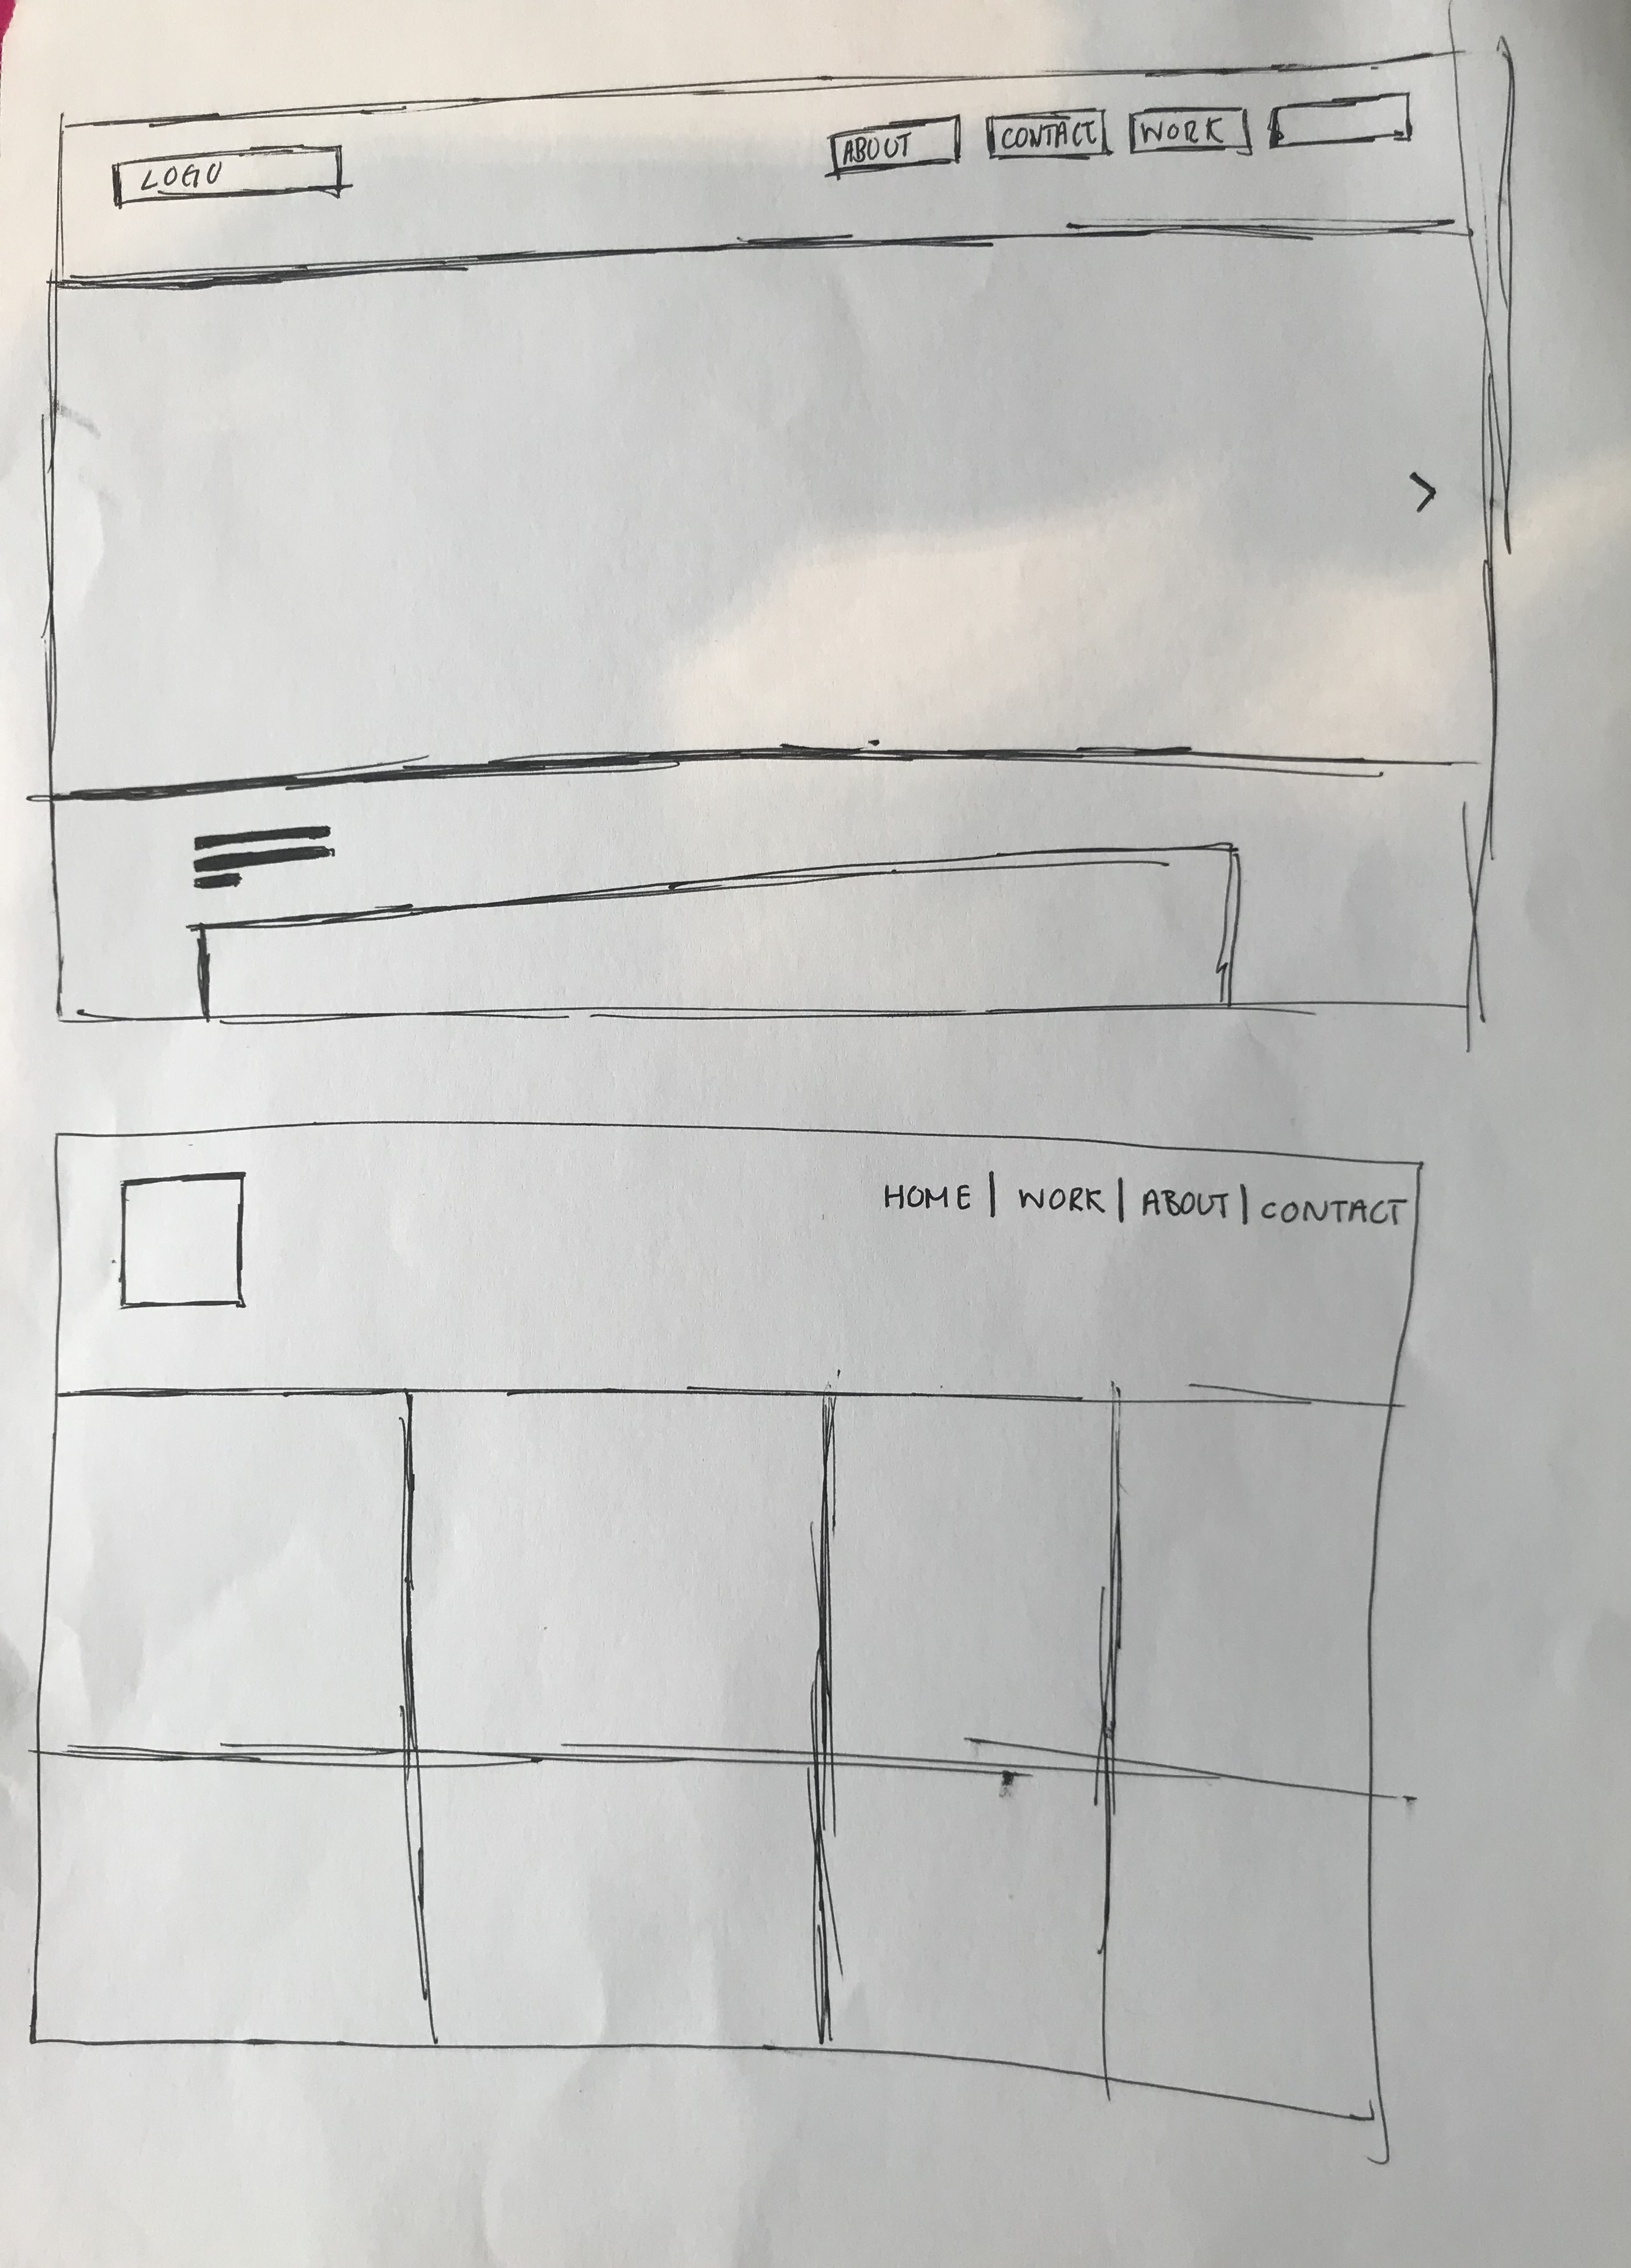 LOGO
ABOUT CONTACT WORK
HOME | WORK | ABOUT | CONTACT